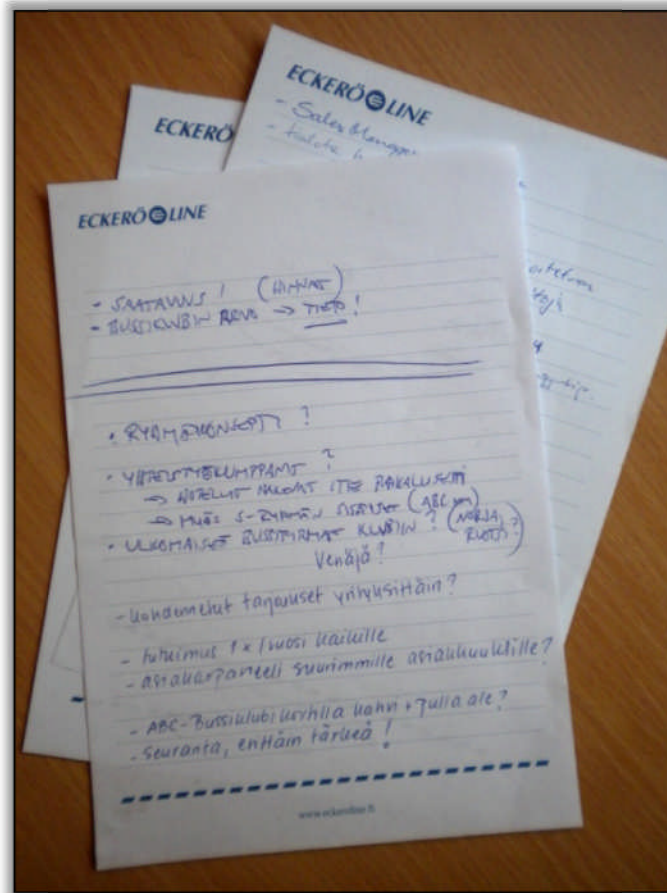 ECKERÖ LINE
- Sales Manager
ECKERÖ
ECKERÖ LINE
- SAATAVUUS! (HINNAT)
- BUSSIKLUBIN ARVO → TIETO!
• RYHMÄKONSEPTI?
• YHTEISTYÖKUMPPANIT?
→ HOTELLIT HALUAVAT ITSE
→ MYÖS S-RYHMÄN SISÄISET (ABC ym)
• ULKOMAISET BUSSIFIRMAT KLUBIIN? (NORJA, RUOTSI?)
Venäjä?
- kohdennetut tarjoukset yrityksittäin?
- tutkimus 1x/vuosi kaikille
- asiakaspaneeli suurimmille asiakkuuksille?
- ABC-Bussiklubi kortilla kahvi + pulla ale?
- seuranta, erittäin tärkeä!
www.eckeroline.fi